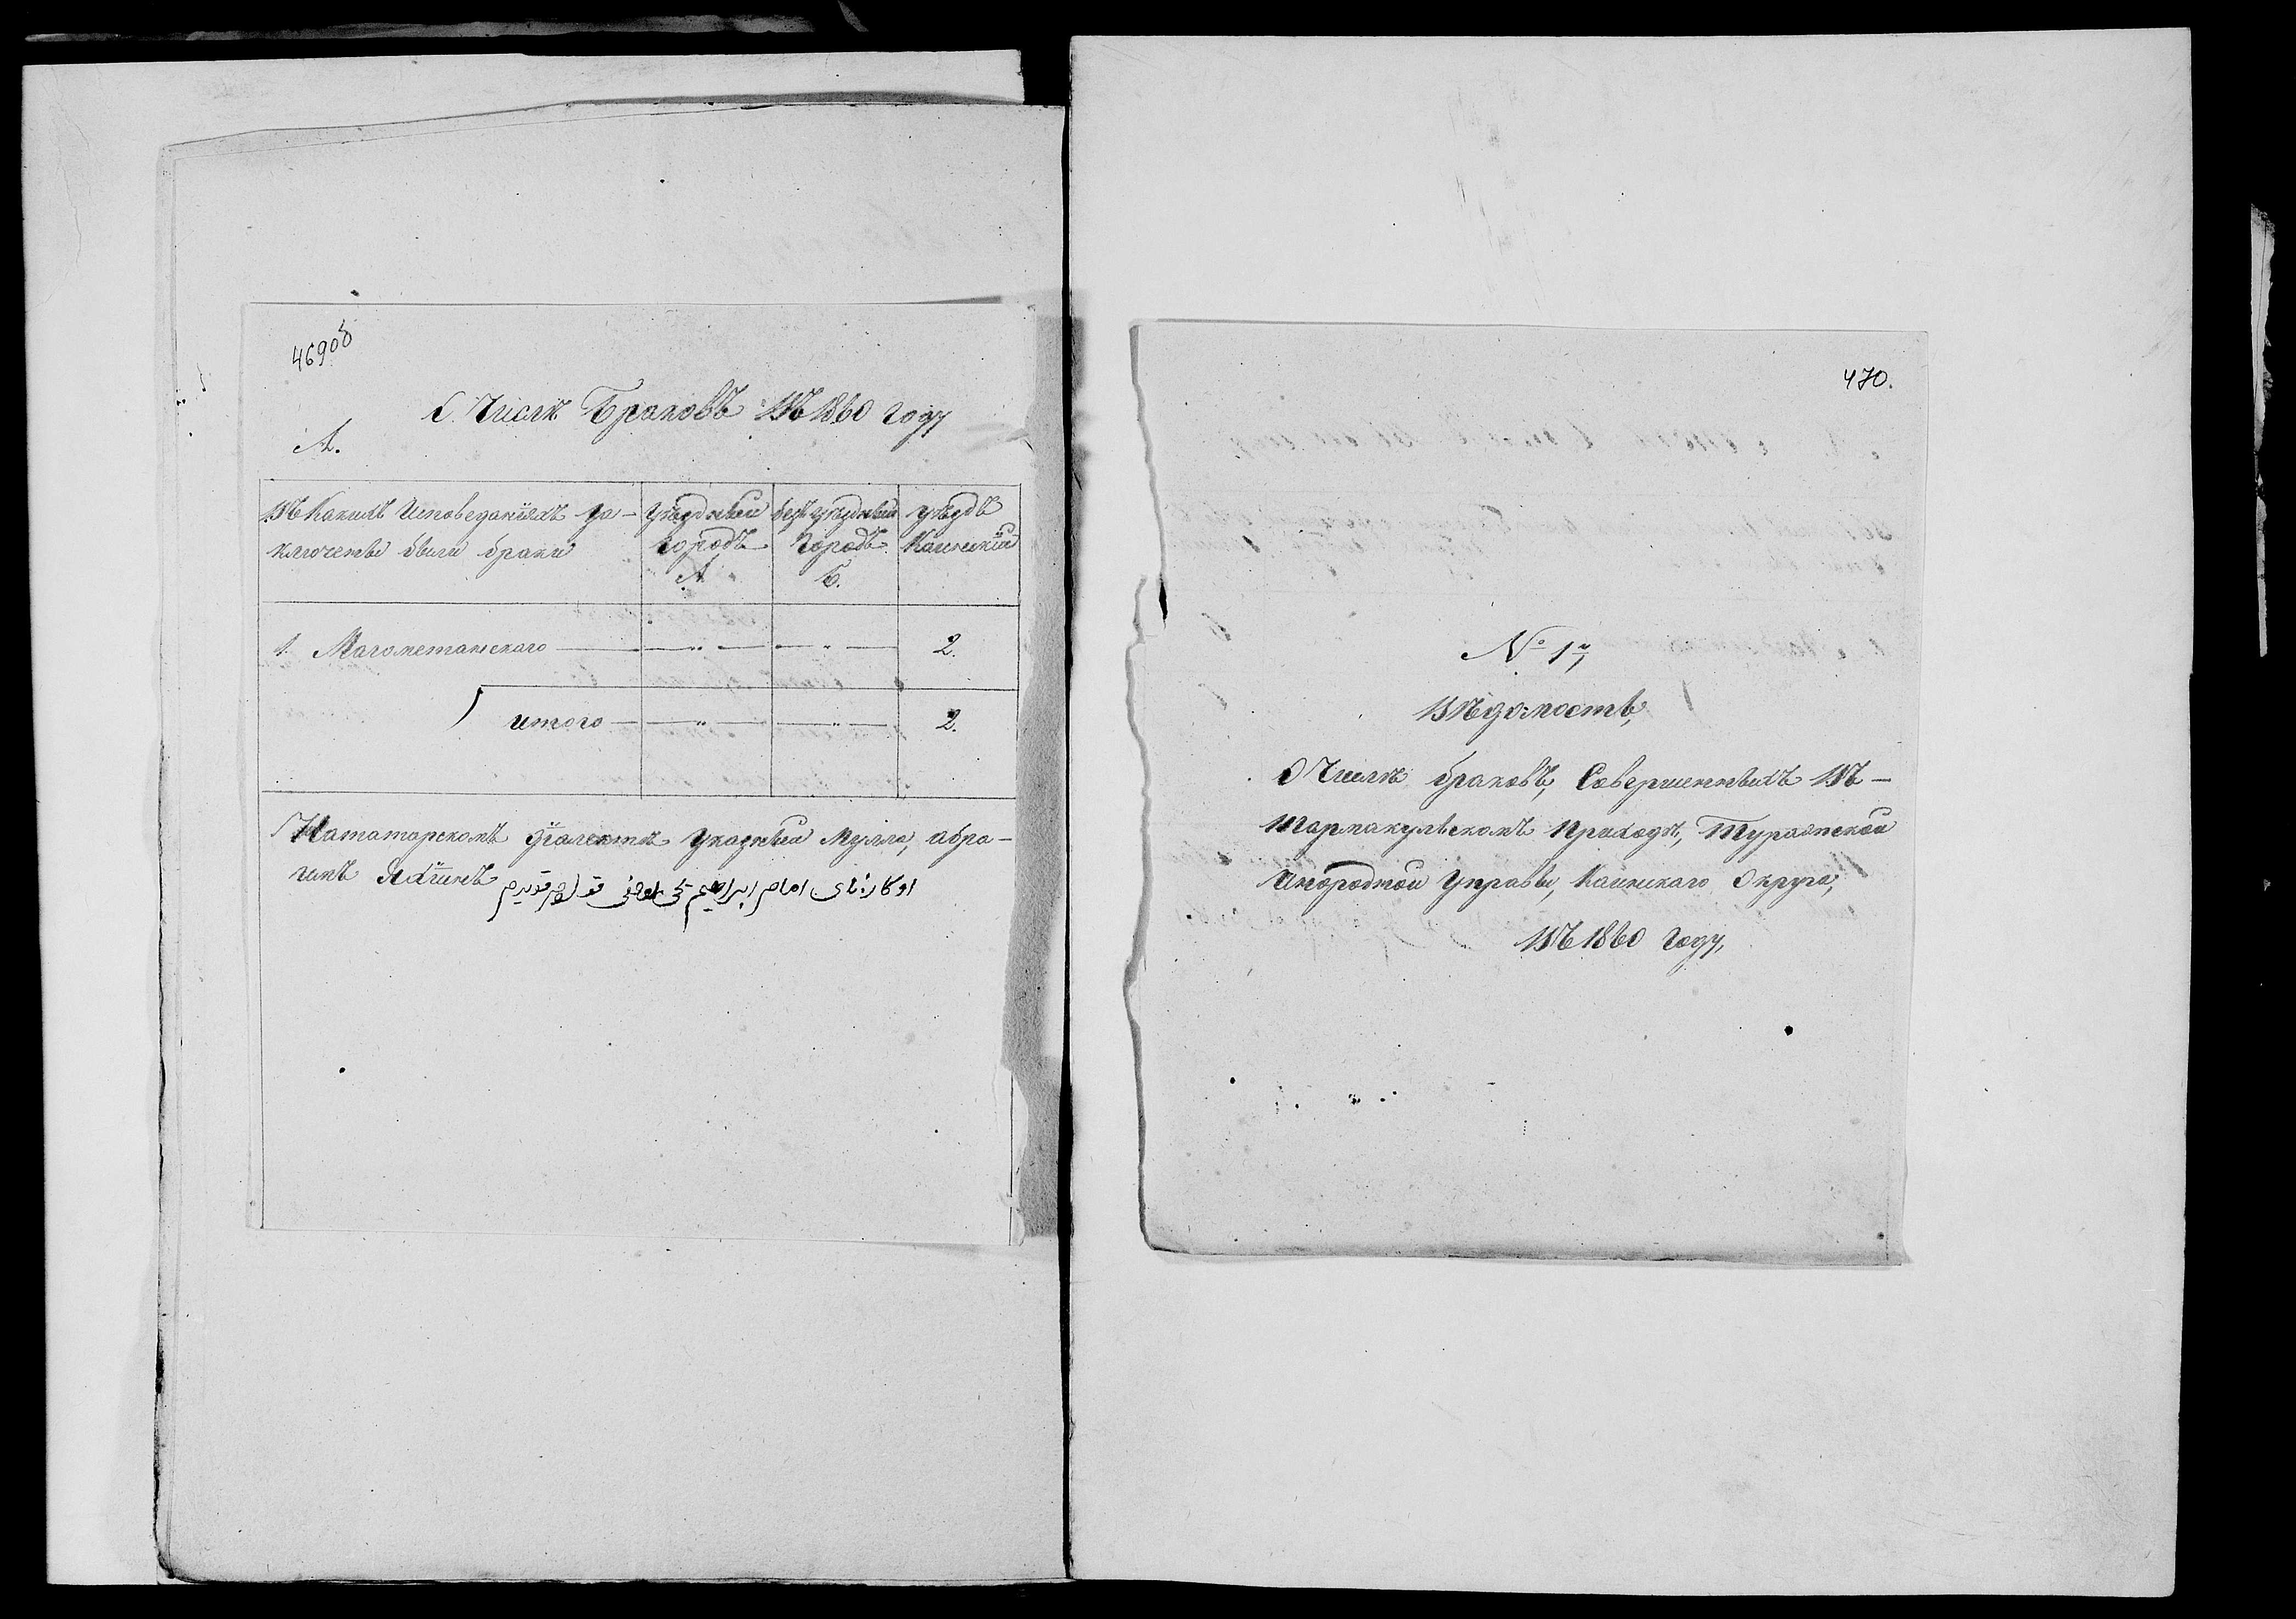 469об
О Числѣ Браковъ Въ 1860 году
А.
Въ Какихъ Исповеданіяхъ За-
ключены были браки
Уѣздный
Городъ
А
безъ уѣздный
Городъ
Б.
уѣздъ
Каинскій
1. Магометанскаго — " — " — 2.
итого — " — " — 2.
На татарскомъ діалектѣ Указный Мулла, абра-
имъ Яхинъ
امام ابراهيم
470.
№ 17
Вѣдомость,
О Числѣ браковъ, Совершенныхъ Въ-
Тармакульскомъ Приходѣ, Туражской
Инородной Управы, Каинскаго Округа,
Въ 1860 Году,